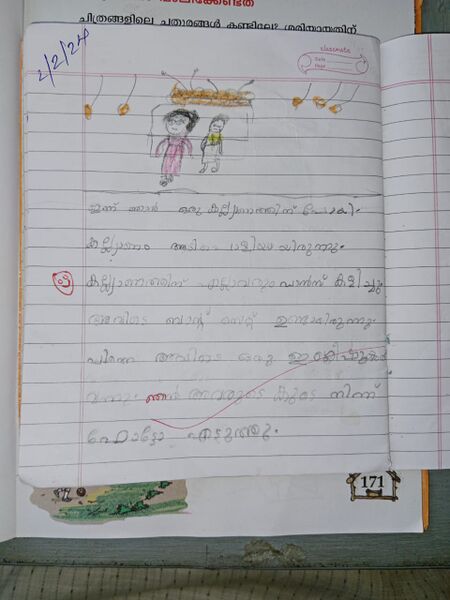 ചിത്രങ്ങളിലെ ചതുരങ്ങൾ കണ്ടില്ലേ? ശരിയായതിന്
2/2/24
classmate
Date
Page
ഇന്ന് ഞാൻ ഒരു കല്ല്യാണത്തിന് പോയി.
കല്ല്യാണം അടിപൊളിയായിരുന്നു.
കല്ല്യാണത്തിന് എല്ലാവരും ഡാൻസ് കളിച്ചു
അവിടെ ബാന്റ് സെറ്റ് ഉണ്ടായിരുന്നു.
പിന്നെ അവിടെ ഒരു
വന്നു. ഞാൻ അവരുടെ കൂടെ നിന്ന്
ഫോട്ടോ എടുത്തു.
171